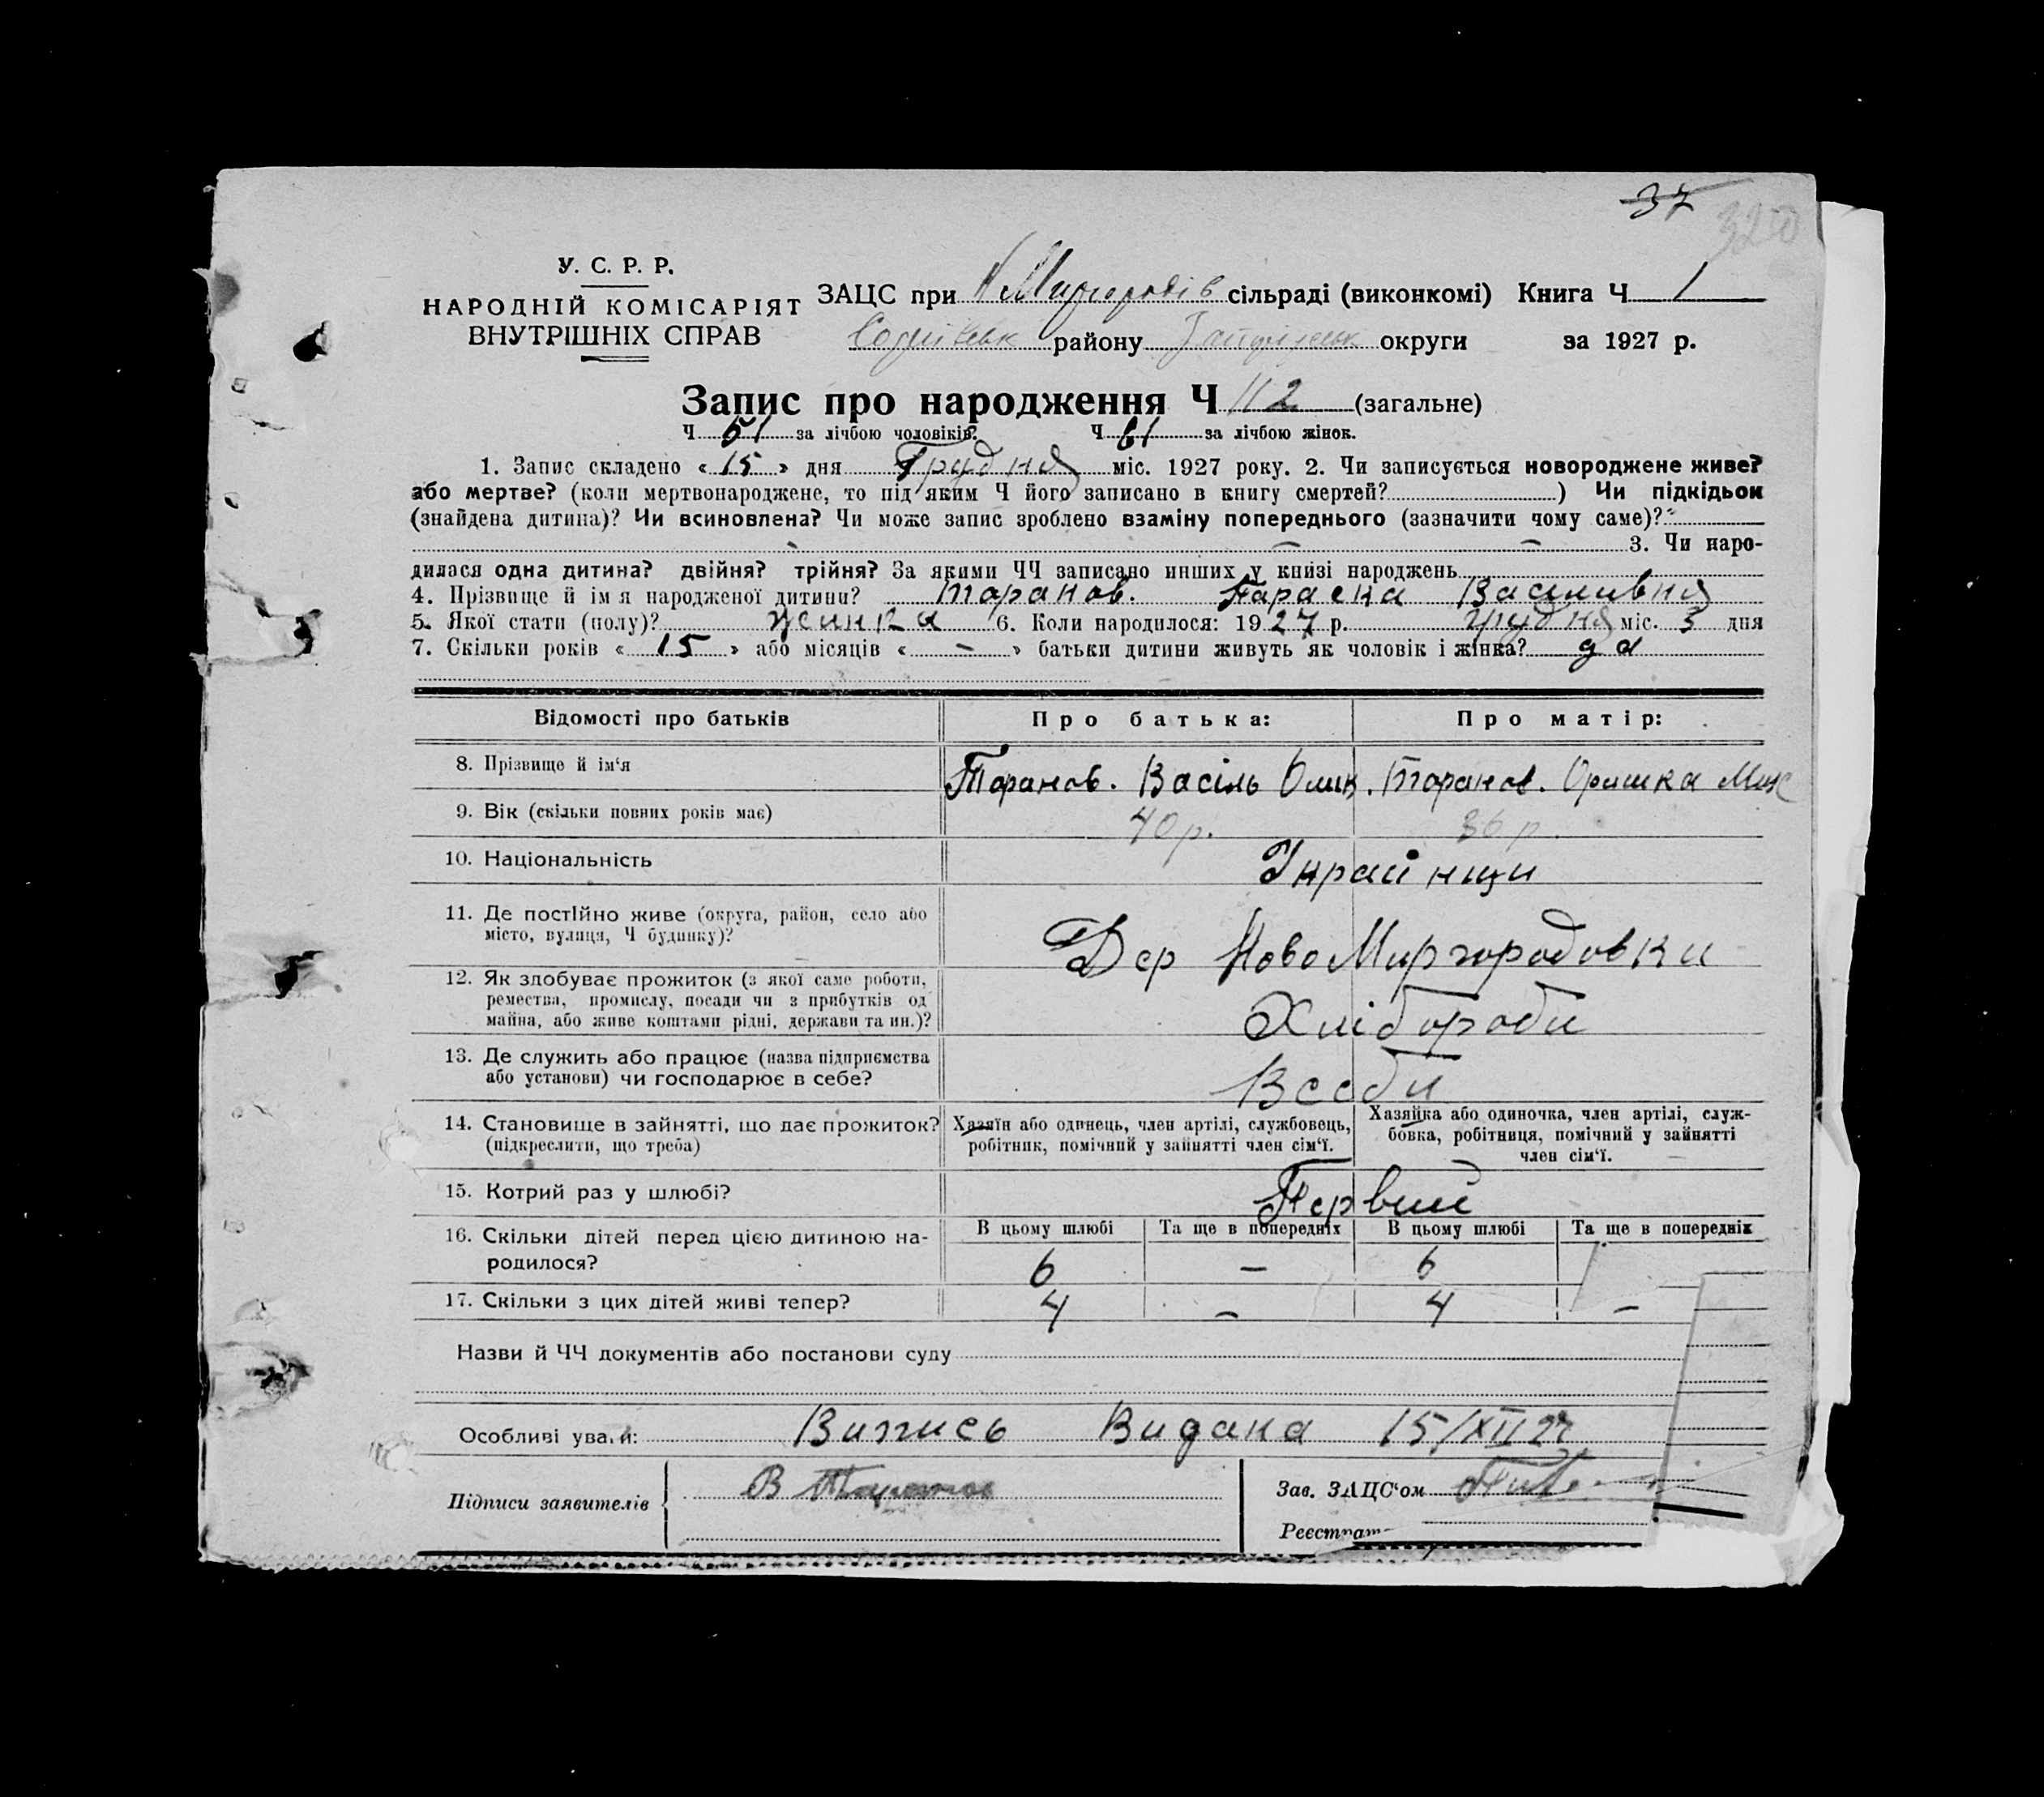 37
320
У. С. Р. Р.
НАРОДНІЙ КОМІСАРІЯТ
ВНУТРІШНІХ СПРАВ
ЗАЦС при Н Миргородів сільраді (виконкомі) Книга Ч 1
району округи за 1927 р.
Запис про народження Ч 112 (загальне)
Ч 51 за лічбою чоловіків? Ч 61 за лічбою жінок.
1. Запис складено « 15 » дня Грудня міс. 1927 року. 2. Чи записується новороджене живе?
або мертве? (коли мертвонароджене, то під яким Ч його записано в книгу смертей? ) Чи підкідьок
(знайдена дитина)? Чи всиновлена? Чи може запис зроблено взаміну попереднього (зазначити чому саме)? -
- - 3. Чи наро-
дилася одна дитина? двійня? трійня? За якими ЧЧ записано инших у книзі народжень
4. Прізвище й імя народженої дитини? Таранов. Параска Василивня
5. Якої стати (полу)? жинка 6. Коли народилося: 1927 р. грудня міс. 5 дня
7. Скільки років « 15 » або місяців « - » батьки дитини живуть як чоловік і жінка? да
Відомості про батьків
Про батька:
Про матір:
8. Прізвище й ім'я
Таранов. Васіль Омик.
Таранов. Оришка Мик
9. Вік (скільки повних років має)
40 р.
36 р.
10. Національність
Украйнци
11. Де постійно живе (округа, район, село або
місто, вулиця, Ч будинку)?
Дер НовоМиргородовки
12. Як здобуває прожиток (з якої саме роботи,
ремества, промислу, посади чи з прибутків од
майна, або живе коштами рідні, держави та ин.)?
Хлібороби
13. Де служить або працює (назва підприємства
або установи) чи господарює в себе?
Всеби
14. Становище в зайнятті, що дає прожиток?
(підкреслити, що треба)
Хазяїн або одинець, член артілі, службовець,
робітник, помічний у зайнятті член сім'ї.
Хазяйка або одиночка, член артілі, служ-
бовка, робітниця, помічний у зайнятті
член сім'ї.
15. Котрий раз у шлюбі?
Первий
16. Скільки дітей перед цією дитиною на-
родилося?
В цьому шлюбі Та ще в попередніх В цьому шлюбі Та ще в попередніх
6 - 6
17. Скільки з цих дітей живі тепер?
4 - 4 -
Назви й ЧЧ документів або постанови суду
Особливі ува. и: Випись Видана 15/XII 27
Підписи заявителів
В Таранов
Зав. ЗАЦС'ом
Реєстрат